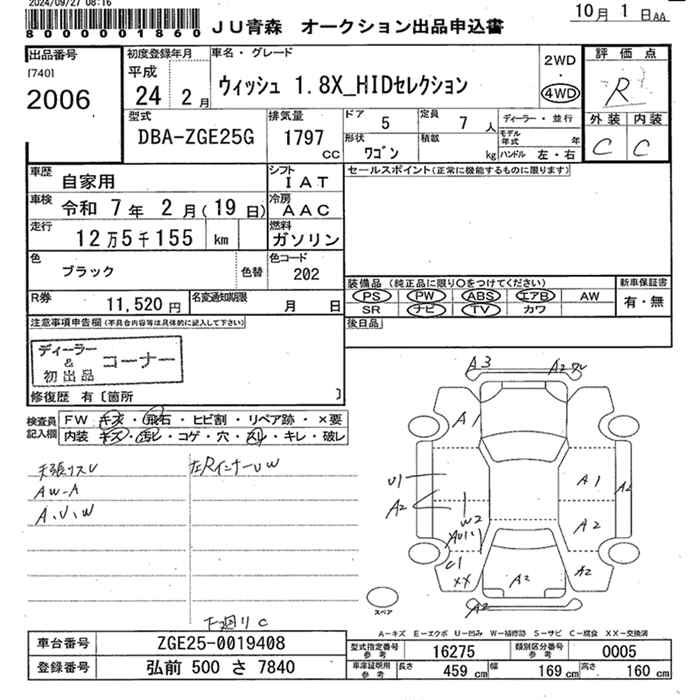 2024/09/27 08:16
8000001860
JU青森 オークション出品申込書
10月 1日AA
出品番号
[740]
2006
初度登録年月
平成
24 2月
車名・グレード
ウィッシュ 1.8X_HIDセレクション
2WD
・
4WD
評価点
R
外装 内装
C C
型式
DBA-ZGE25G
排気量
1797
cc
ドア
5
定員
7人
形状
ワゴン
積載
kg
ディーラー・並行
モデル年式 年
ハンドル 左・右
車歴
自家用
シフト
IAT
セールスポイント(正常に機能するものに限ります)
車検
令和 7年 2月(19日)
冷房
AAC
走行
12万5千155 km
燃料
ガソリン
色
ブラック
色替
色コード
202
装備品 (純正品に限り○をつけてください)
PS PW ABS エアB AW
SR ナビ TV カワ
新車保証書
有・無
R券
11,520円
名変通知期限
月 日
後日品
注意事項申告欄(不具合内容等は具体的に記入して下さい)
ディーラー
&
初出品
コーナー
修復歴 有〔箇所 〕
検査員
記入欄
FW キズ・飛石・ヒビ割・リペア跡・×要
内装 キズ・汚レ・コゲ・穴・スレ・キレ・破レ
天張りスレ
AW-A
A、U、W
左RインナーUW
下廻りC
A3
A2
A1
U1
A2
W2
AU1
C1
XX
A1
A2
A2
A2
A2
スペア
A-キズ E-エクボ U-凹み W-補修跡 S-サビ C-腐食 XX-交換済
車台番号
ZGE25-0019408
登録番号
弘前 500 さ 7840
型式指定番号
参考
16275
類別区分番号
参考
0005
車庫証明用
参考
長さ 459 cm
幅 169 cm
高さ 160 cm